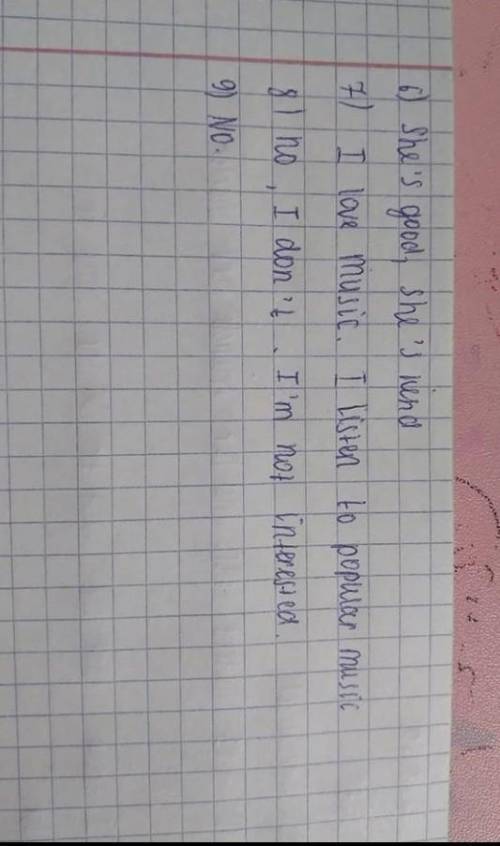 6) She's good, she's kind
7) I love music. I listen to popular music
8) no, I don't. I'm not interested.
9) No.